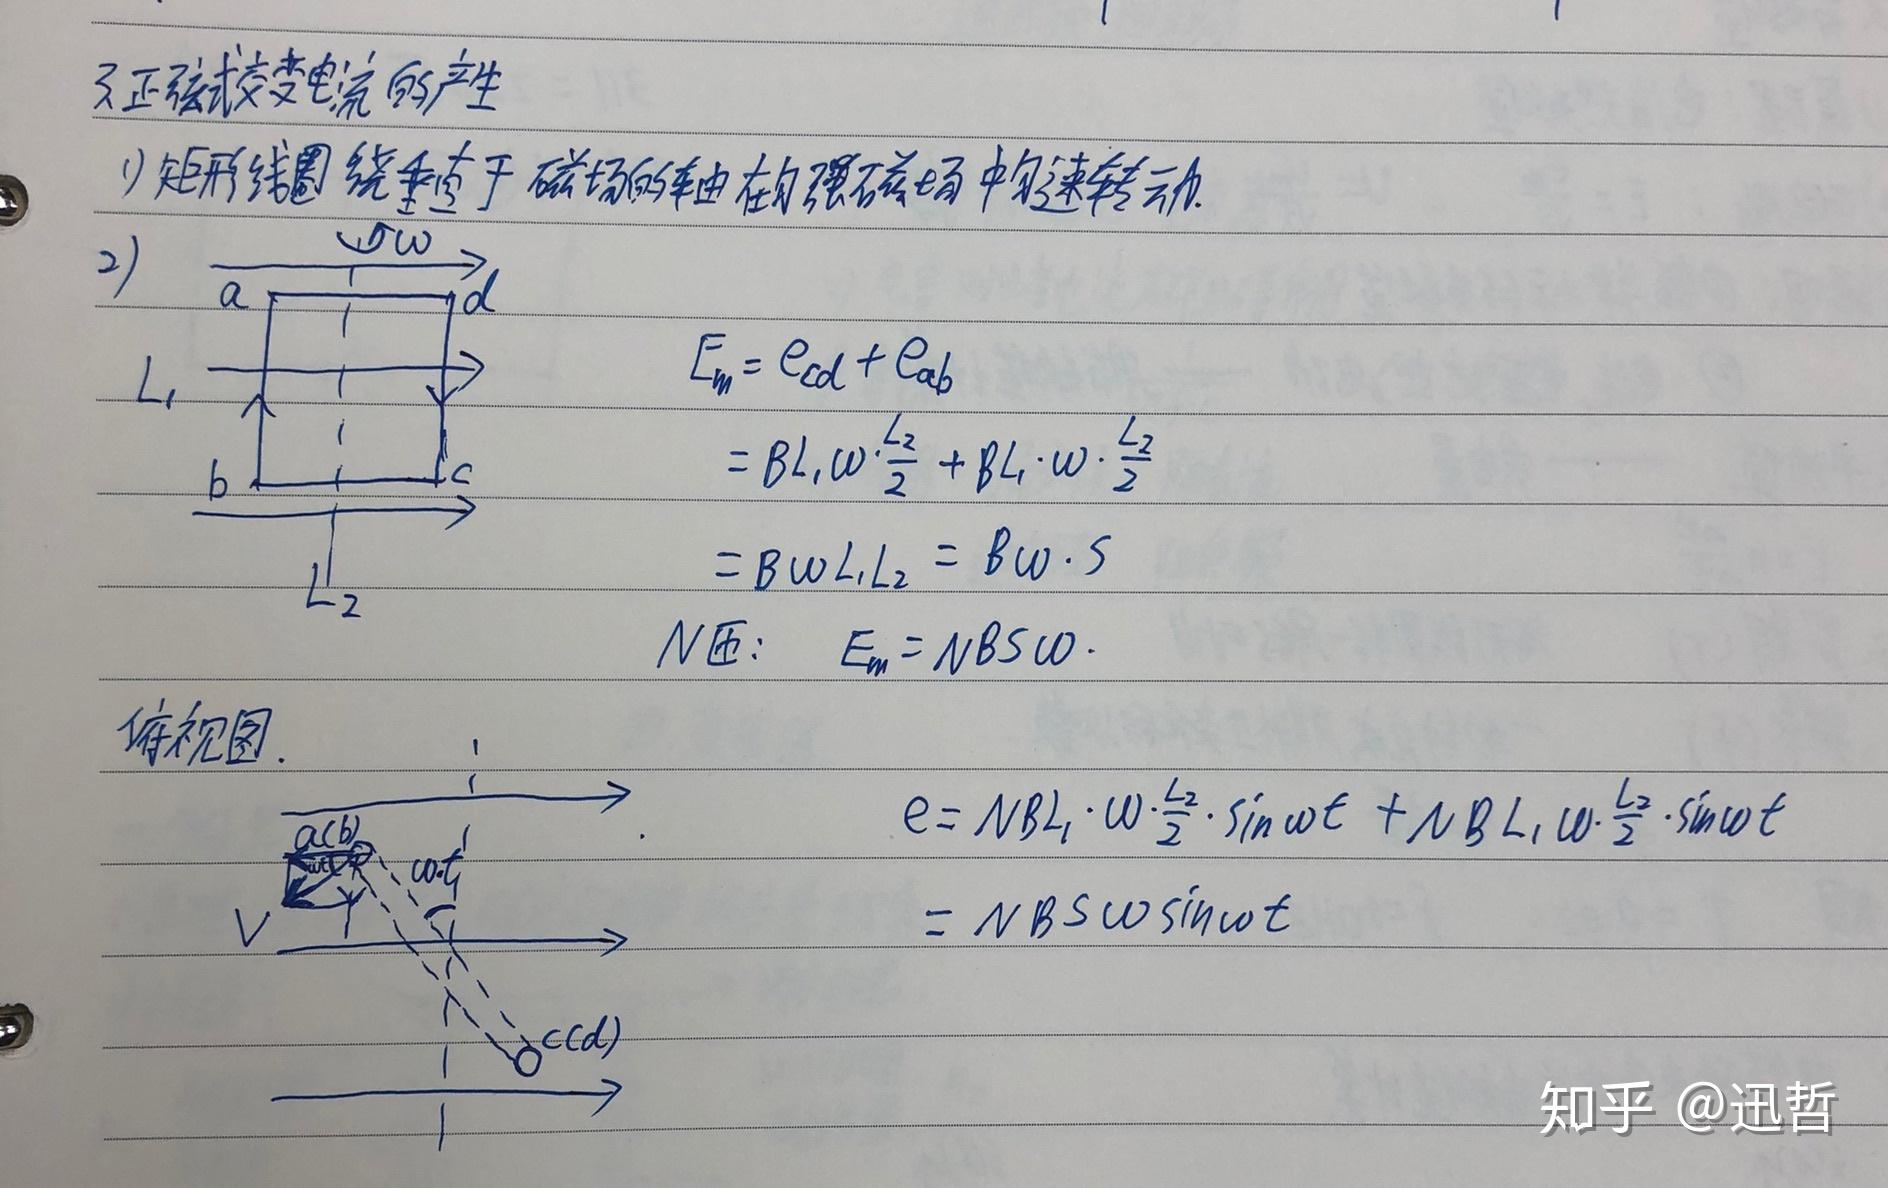 3.正弦式交变电流的产生
1)矩形线圈绕垂直于磁场的轴在匀强磁场中匀速转动.
2)
ω
a
d
L₁
b
c
L₂
Eₘ = e_cd + e_ab
= BL₁ω·L₂/2 + BL₁·ω·L₂/2
= BωL₁L₂ = Bω·S
N匝: Eₘ = NBSω.
俯视图.
a(b)
ωt
ω·t
V
c(d)
e = NBL₁·ω·L₂/2·sinωt + NBL₁ω·L₂/2·sinωt
= NBSωsinωt
知乎 @迅哲